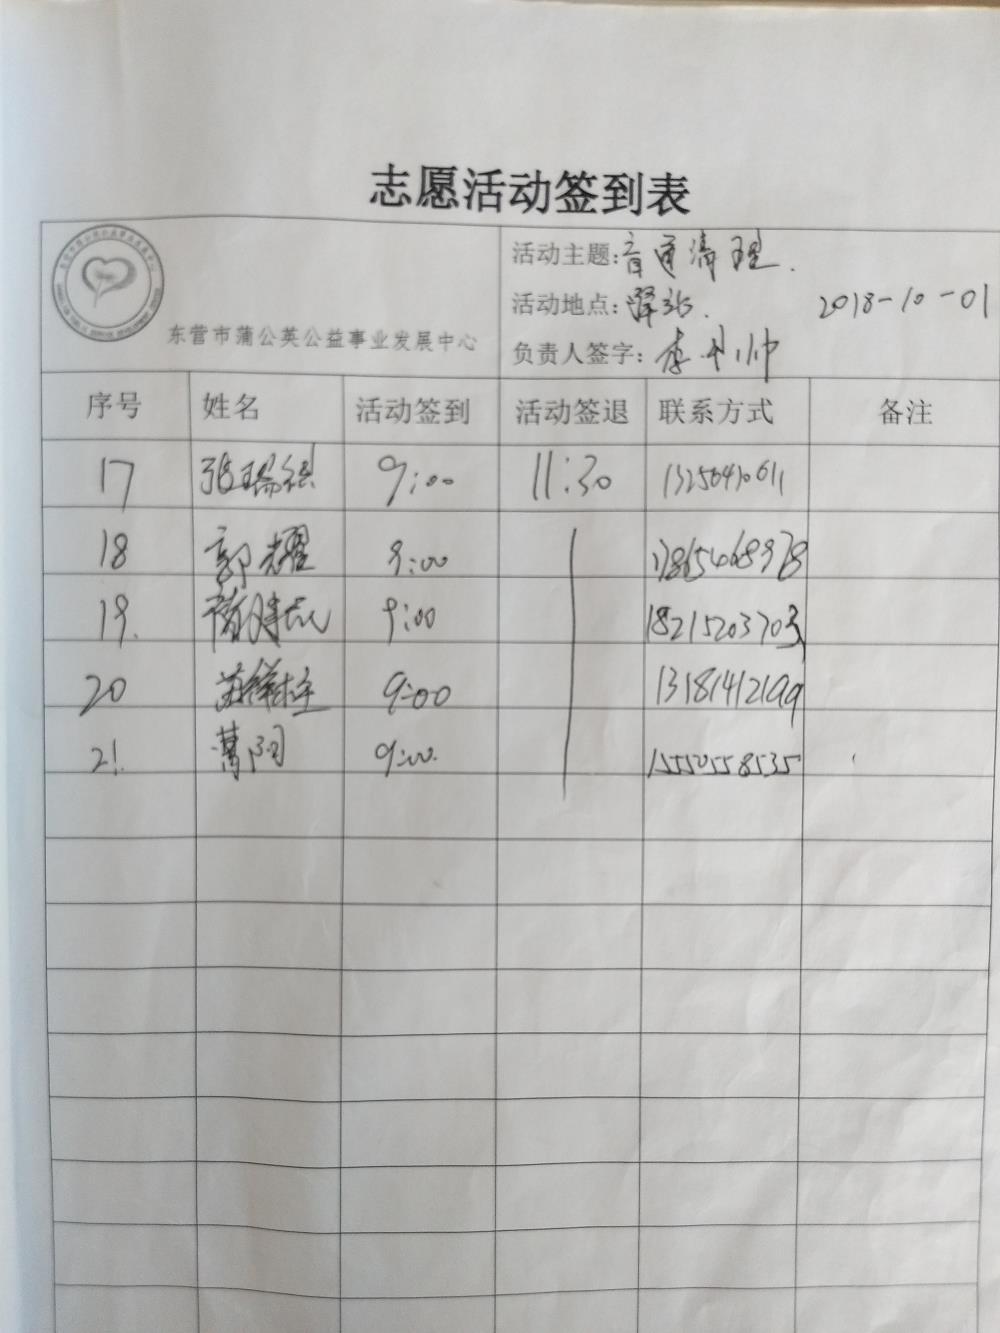 志愿活动签到表
东营市蒲公英公益事业发展中心
活动主题: 清理.
活动地点:
2018-10-01
负责人签字: 李 帅
序号 姓名 活动签到 活动签退 联系方式 备注
17 张瑞 9:00 11:30 13256430611
18 郭耀 9:00 17865468978
19. 9:00 18215203703
20 9:00 13181412199
21. 葛阳 9:00. 15550558535